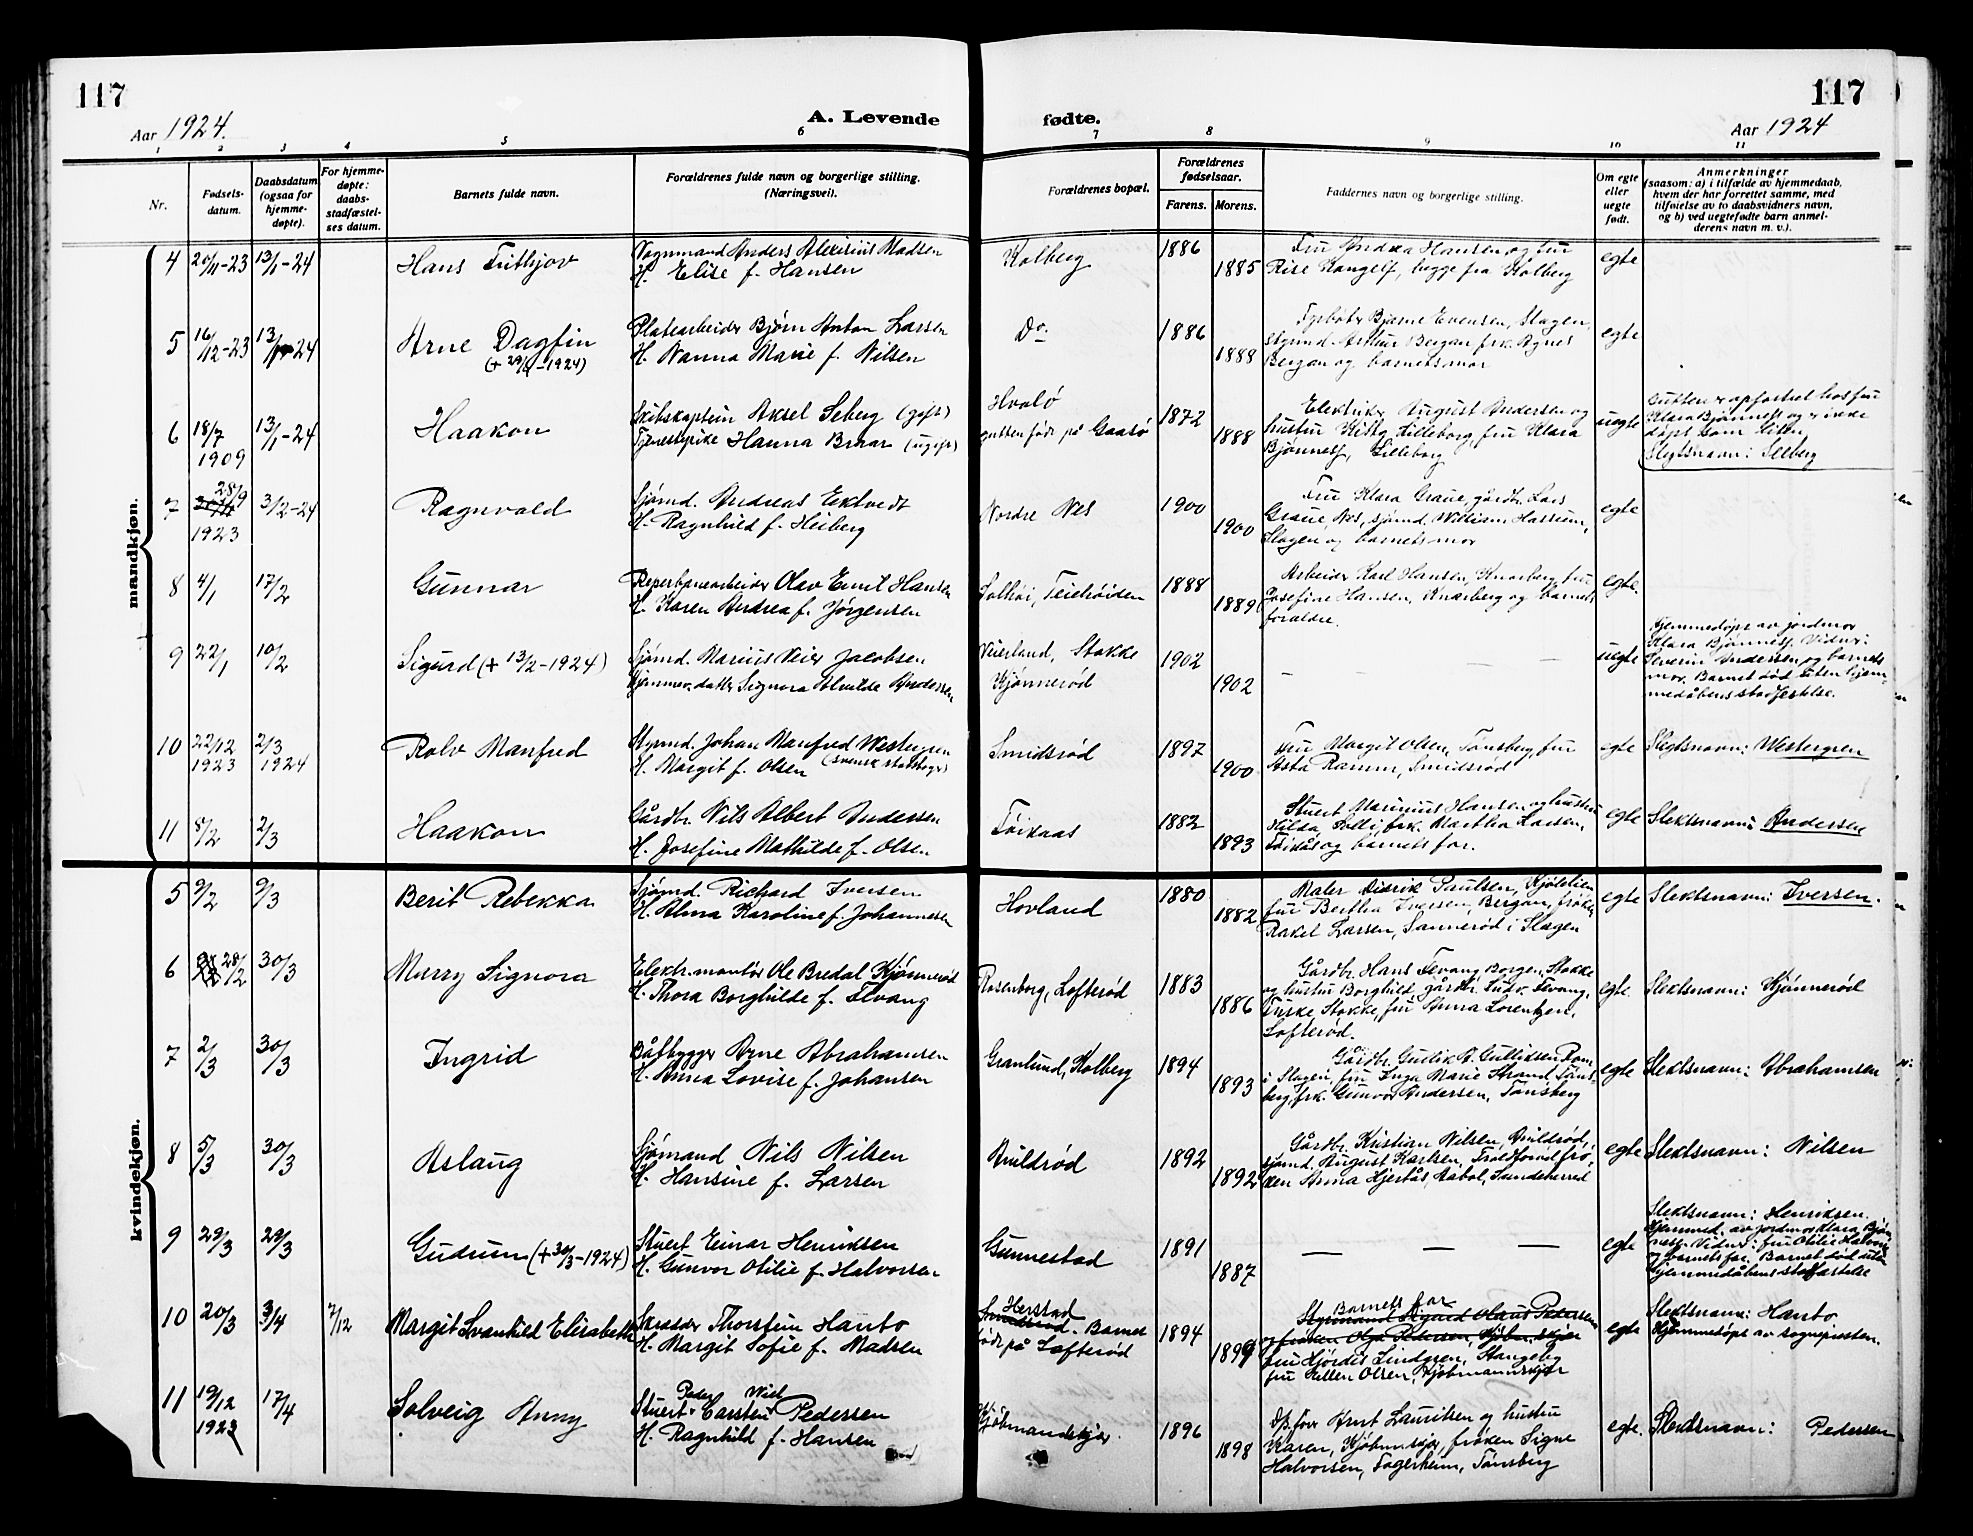 117
117
Aar 1924.
A. Levende
fødte.
Aar 1924
1 2 3 4 5 6 7 8 9 10 11
Nr.
Fødsels-
datum.
Daabsdatum
(ogsaa for
hjemme-
døpte).
For hjemme-
døpte:
daabs-
stadfæstel-
ses datum.
Barnets fulde navn.
Forældrenes fulde navn og borgerlige stilling.
(Næringsvei).
Forældrenes bopæl.
Forældrenes
fødselsaar.
Farens. Morens.
Faddernes navn og borgerlige stilling.
Om egte
eller
uegte
født.
Anmerkninger
(saasom: a) i tilfælde av hjemmedaab,
hvem der har forrettet samme, med
tilføielse av to daabsvidners navn,
og b) ved uegtefødte barn anmel-
derens navn m. v.).
mandkjøn.
4 20/11-23 13/1-24 Hans Frithjov
Vognmand Anders Alexisius Madsen
H. Elise f. Hansen
Kolberg
1886
1885
Fru Andrea Hansen og fru
Rise Kangelf, begge fra Kolberg
egte
5 16/12-23 13/1-24 Arne Dagfin
(+ 29/1-1924)
Platearbeider Bjørn Anton Larsen
H. Nanna Marie f. Nilsen
Do
1886
1888
Fyrbøter Bjarne Evensen, Slagen,
styrmd. Arthur Bergan frk. Agnes
Bergan og barnets mor
egte
6 18/7 1909 13/1-24 Haakon
Skibskaptein Aksel Seberg (gift)
Tjenestepike Hanna Braar (ugift)
Hvalø
gutten født på Gaasø
1872
1888
Elektriker August Andersen og
hustru Lilleborg, fru Klara
Bjønness, Lilleborg
uegte
Gutten er opfostret hos fru
Klara Bjønness og er ikke
døpt som liten
Slegtsnavn: Seeberg
7 28/9 1923 3/2-24 Ragnvald
Sjømd. Andreas Ektvedt
H. Ragnhild f. Heiberg
Nordre Nes
1900
1900
Fru Klara Graue, gårdbr. Lars
Graue, Nes, sjømd. William Hassum,
Slagen og barnets mor
egte
8 4/1 17/2 Gunnar
Reperbanearbeider Olav Emil Hansen
H. Karen Andrea f. Jørgensen
Solhøi, Teiehøiden
1888
1889
Arbeider Karl Hansen, Knarberg, fru
Josefine Hansen, Knarberg og barnets
foraldre.
egte.
9 22/1 10/2 Sigurd (+ 13/2-1924)
Sjømd. Marius Veier Jacobsen
Hjemmev. datter Signora Alvilde Andersen
Veierland, Stokke
Kjønnerød
1902
1902
— — —
uegte
Hjemmedøpt av jordmor
Klara Bjønness. Vidner:
Severin Andersen og barnets
mor. Barnet død uten hjem-
medåbens stadfestelse.
10 22/12 1923 2/3 1924 Rolv Manfred
Styrmd. Johan Manfred Westergren
H. Margit f. Olsen (svensk statsborger)
Smidsrød
1897
1900
Fru Margit Olsen, Tønsberg, fru
Asta Ramm, Smidsrød
egte
Slegtsnavn: Westergren
11 8/2 2/3 Haakon
Gårdbr. Nils Albert Andersen
H. Josefine Mathilde f. Olsen
Føikaas
1882
1893
Stuert Marinius Hansen og hustru
Hilda, Solli, frk. Martha Larsen,
Føikås og barnets far.
egte
Slektsnavn: Andersen
kvindekjøn.
5 9/2 9/3 Berit Rebekka
Sjømd. Richard Iversen
H. Alma Karoline f. Johannesen
Hovland
1880
1882
Maler Didrik Paulsen, Kjølelien
fru Bertha Iversen, Bergan, frøken
Rakel Larsen, Sannerød i Slagen
egte
Slektsnavn: Iversen.
6 28/2 30/3 Marry Signora
Elektr. montør Ole Bredal Kjønnerød
H. Thora Borghilde f. Tevang
Rosenborg, Lofterød
1883
1886
Gårdbr. Hans Tevang Borgen, Stokke
og hustru Borghild, gårdbr. Ludv. Tevang,
Stokke, fru Anna Lorentzen,
Lofterød.
egte.
Slektsnavn: Kjønnerød
7 2/3 30/3 Ingrid
Båtbygger Arne Abrahamsen
H. Anna Lovise f. Johansen
Granlund, Kolberg
1894
1893
Gårdbr. Gullik A. Gulliksen Rom
i Slagen, fru Inga Marie Strand, Tøns-
berg, frk. Gunvor Andersen, Tønsberg
egte
Slektsnavn: Abrahamsen
8 5/3 30/3 Aslaug
Sjømand Nils Nilsen
H. Hansine f. Larsen
Buildrød
1892
1892
Gårdbr. Kristian Nilsen, Buildrød,
sjømd. August Karlsen, frø-
ken Anna Hjertås, Aabol, Sandeherred
egte
Slektsnavn: Nilsen
9 29/3 29/3 Gudrun (+ 30/3-1924)
Stuert Einar Henriksen
H. Gunvor Otilie f. Halvorsen
Gunnestad
1891
1887
— — —
egte
Slektsnavn: Henriksen.
Hjemmed. av jordmor Klara Bjøn-
ness. Vidner: fru Otilie Halvorsen
og barnets far. Barnet død uten
hjemmedåbens stadfæstelse
10 20/3 3/4 7/12 Margit Svanhild Elisabeth
Skrædder Thorstein Hanto
H. Margit Sofie f. Madsen
Herstad
Smidsrød. Barnet
født på Lofterød
1894
1899
Barnets far
Styrmand Sigurd Olaus Pedersen
og frøken Olga Pedersen, Kjøbmskjær
fru Hjørdis Lindgren, Stangeby
fru Hellen Olsen, Kjøbmannskjær
egte
Slektsnavn: Hanto.
Hjemmedøpt av sognepresten.
11 19/12 1923 17/4 Solveig Anny
Peder Wiel
Stuert Carsten Pedersen
H. Ragnhild f. Hansen
Kjøbmandskjær.
1896
1898
Arnt Lauritsen og hustru
Karen, Kjøbmskjær, frøken Signe
Halvorsen, Fagerheim, Tønsberg
egte.
Slektsnavn: Pedersen